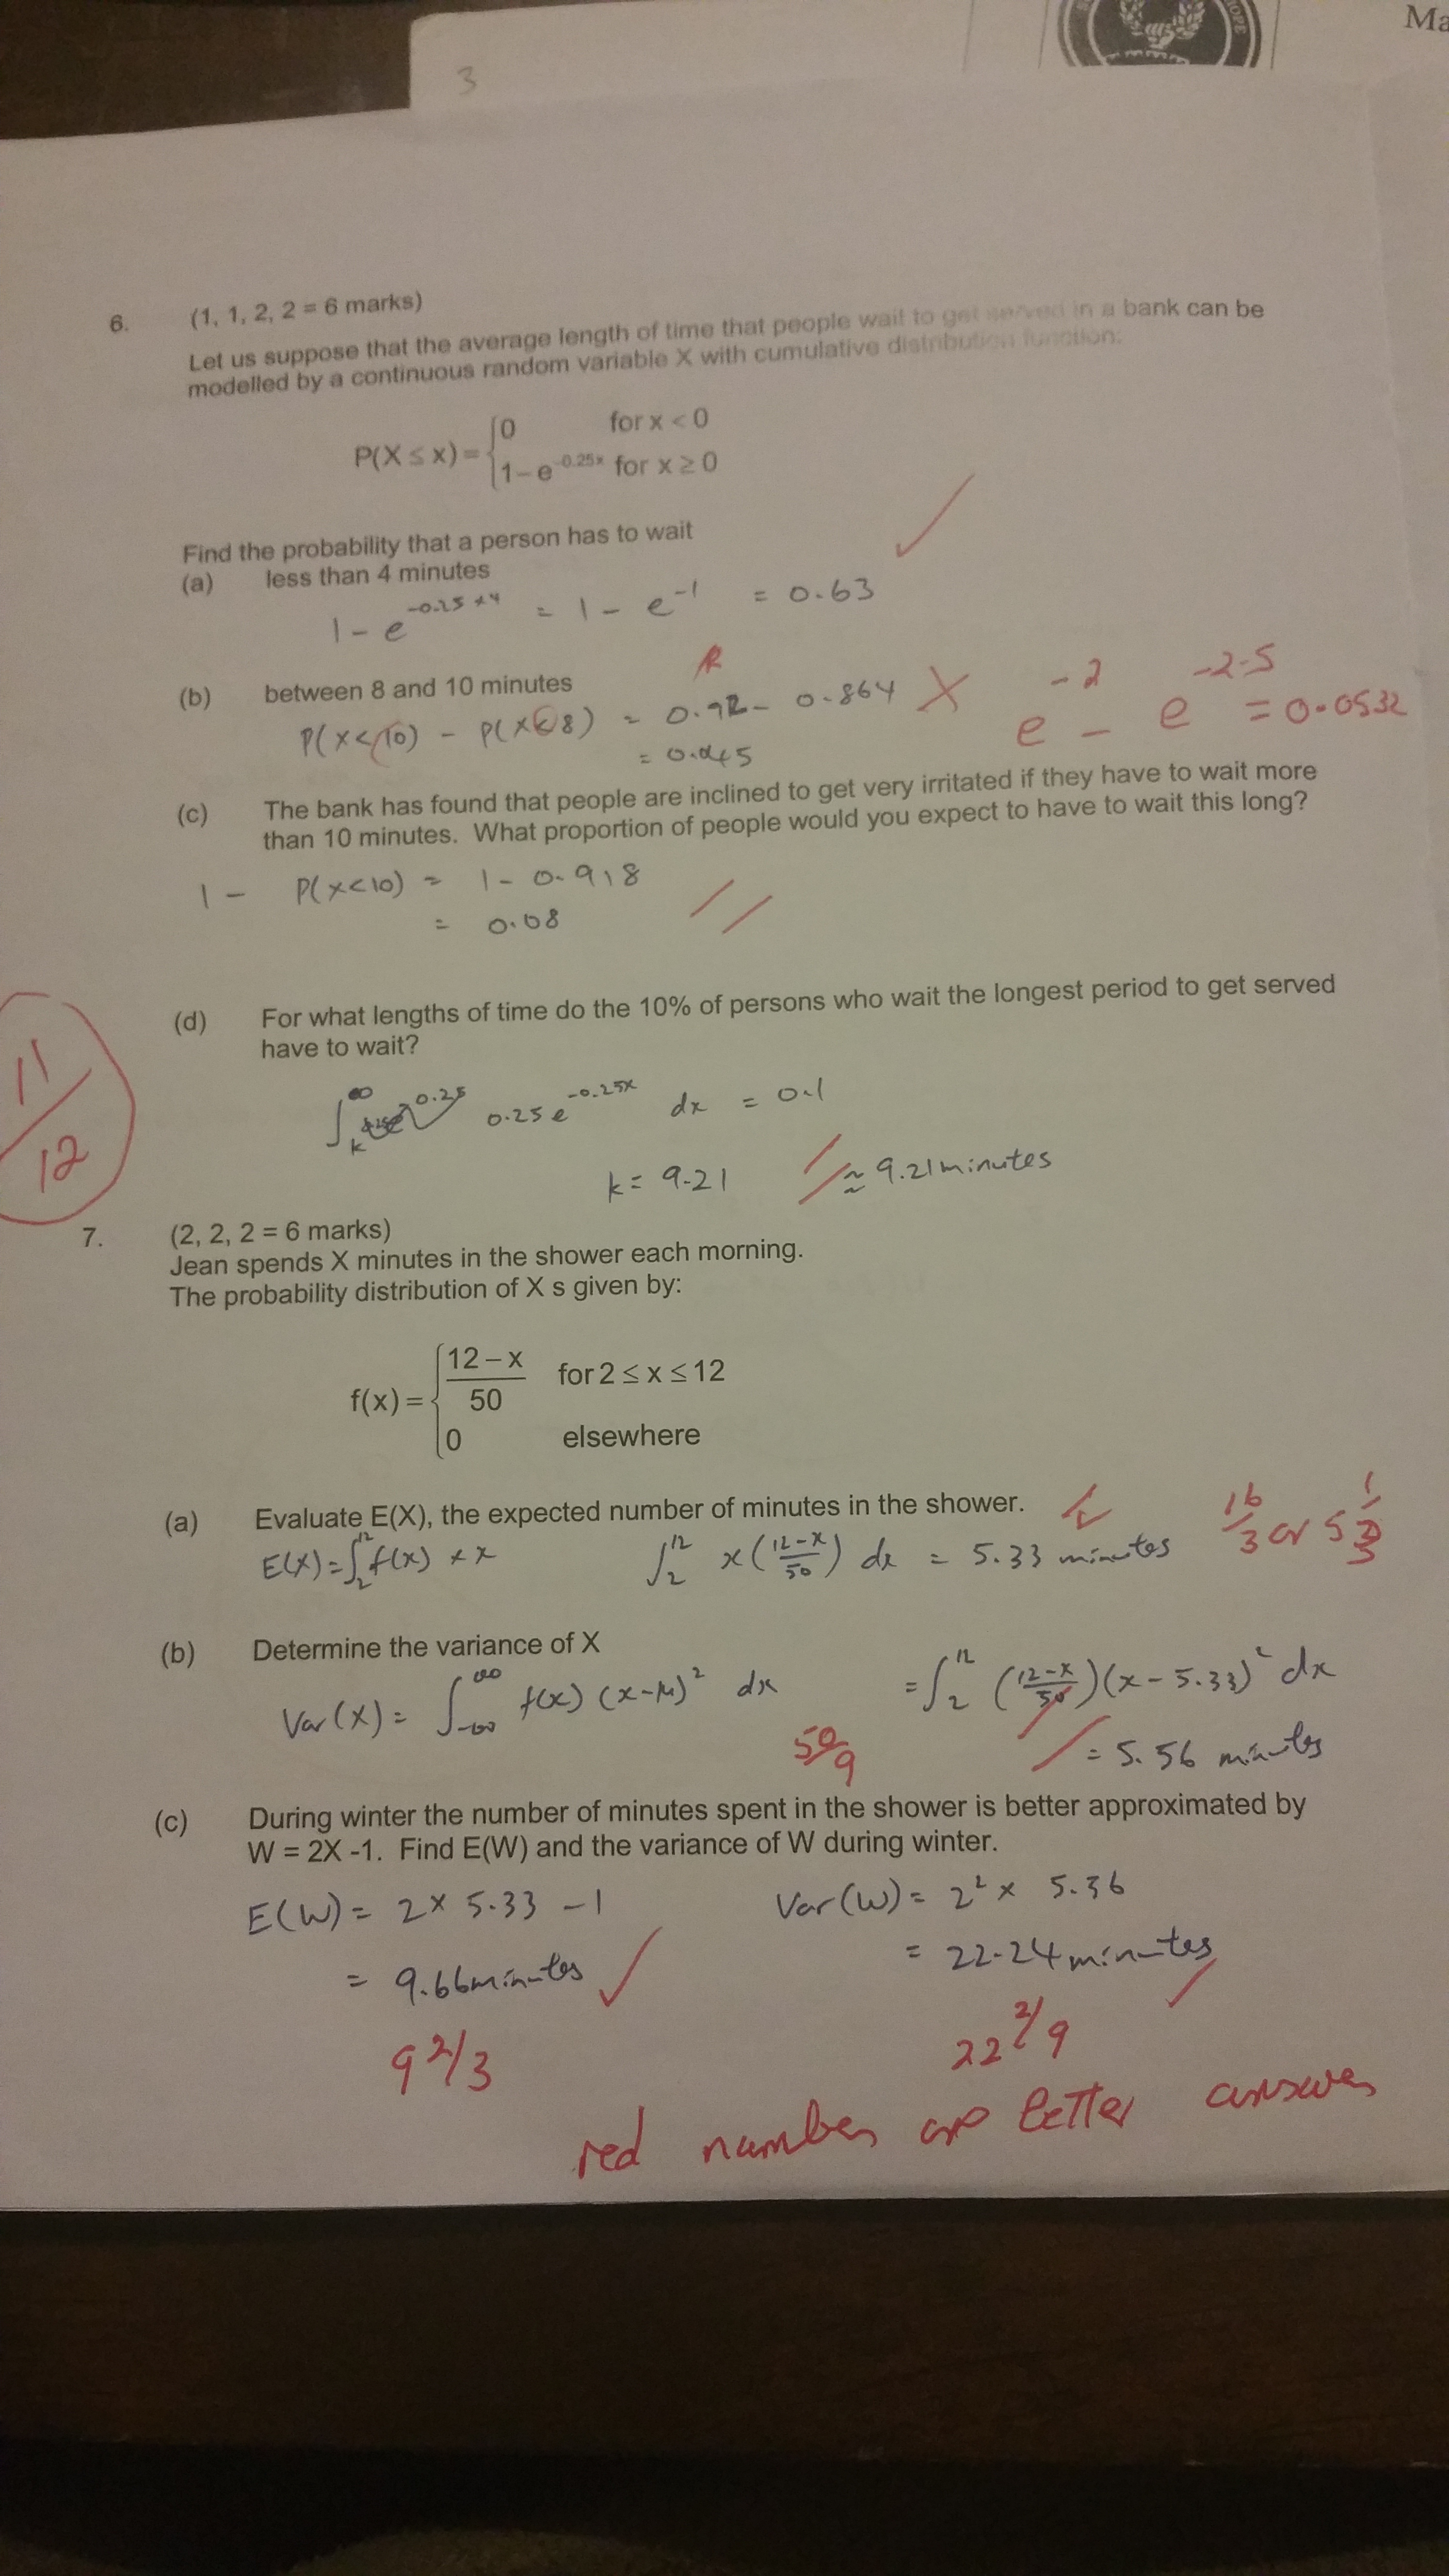 Ma
3
6. (1, 1, 2, 2 = 6 marks)
Let us suppose that the average length of time that people wait to get served in a bank can be
modelled by a continuous random variable X with cumulative distribution function:
0 for x < 0
P(X ≤ x) = {
1 – e^-0.25x for x ≥ 0
Find the probability that a person has to wait
(a) less than 4 minutes
1 - e^-0.25×4 = 1 - e^-1 = 0.63
(b) between 8 and 10 minutes
P(X<10) - P(X<8) = 0.92 - 0.864 X e^-2 - e^-2.5 = 0.0532
= 0.045
(c) The bank has found that people are inclined to get very irritated if they have to wait more
than 10 minutes. What proportion of people would you expect to have to wait this long?
1 - P(X<10) = 1 - 0.918
= 0.08
(d) For what lengths of time do the 10% of persons who wait the longest period to get served
have to wait?
∫k^∞ 0.25e^-0.25x dx = 0.1
k = 9.21 ≈ 9.21 minutes
11/12
7. (2, 2, 2 = 6 marks)
Jean spends X minutes in the shower each morning.
The probability distribution of X s given by:
12 – x
for 2 ≤ x ≤ 12
f(x) = { 50
0 elsewhere
(a) Evaluate E(X), the expected number of minutes in the shower.
E(X) = ∫2^12 f(x) × x ∫2^12 x(12-x/50) dx = 5.33 minutes 16/3 or 5 1/3
(b) Determine the variance of X
Var(X) = ∫-∞^∞ f(x) (x-μ)² dx = ∫2^12 (12-x/50)(x-5.33)² dx
50/9 = 5.56 minutes
(c) During winter the number of minutes spent in the shower is better approximated by
W = 2X -1. Find E(W) and the variance of W during winter.
E(W) = 2 × 5.33 - 1 Var(W) = 2² × 5.56
= 9.66 minutes = 22.24 minutes
9 2/3 22 2/9
red numbers are better answers